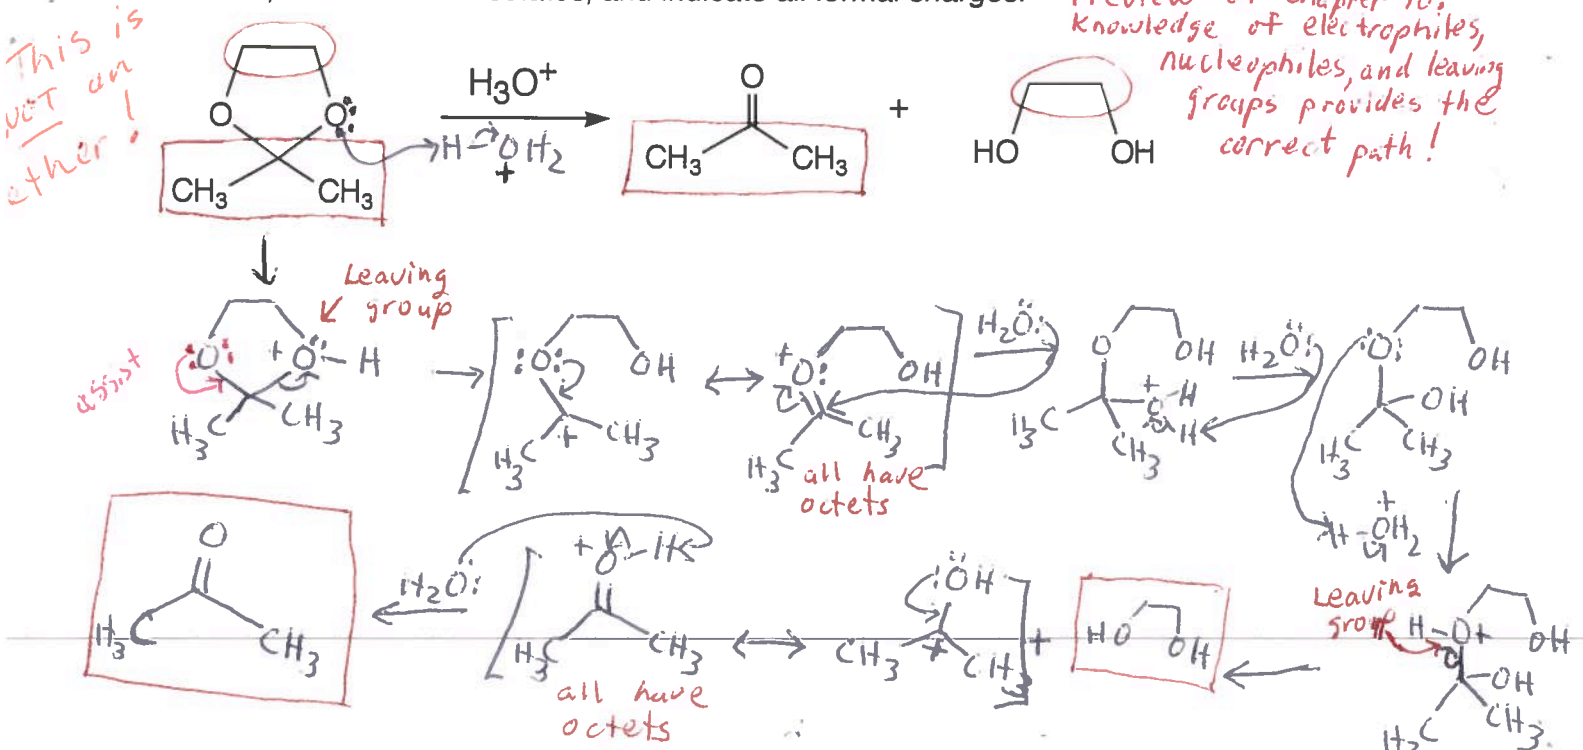 and indicate all formal charges.
Knowledge of electrophiles,
nucleophiles, and leaving
groups provides the
correct path!
This is
NOT an
ether!
O
O
CH3
CH3
H3O+
H-OH2
+
O
CH3
CH3
+
HO
OH
Leaving
group
assist
O
+O-H
H3C
CH3
O
OH
+
H3C
CH3
+
O
OH
H3C
CH3
all have
octets
H2O:
O
OH
+
O-H
H
H3C
CH3
H2O:
O
OH
OH
H3C
CH3
H-OH2
+
Leaving
group
H-O+
OH
OH
H3C
CH3
HO
OH
+
OH
CH3
+
CH3
+O-H
H3C
CH3
all have
octets
H2O:
O
H3C
CH3